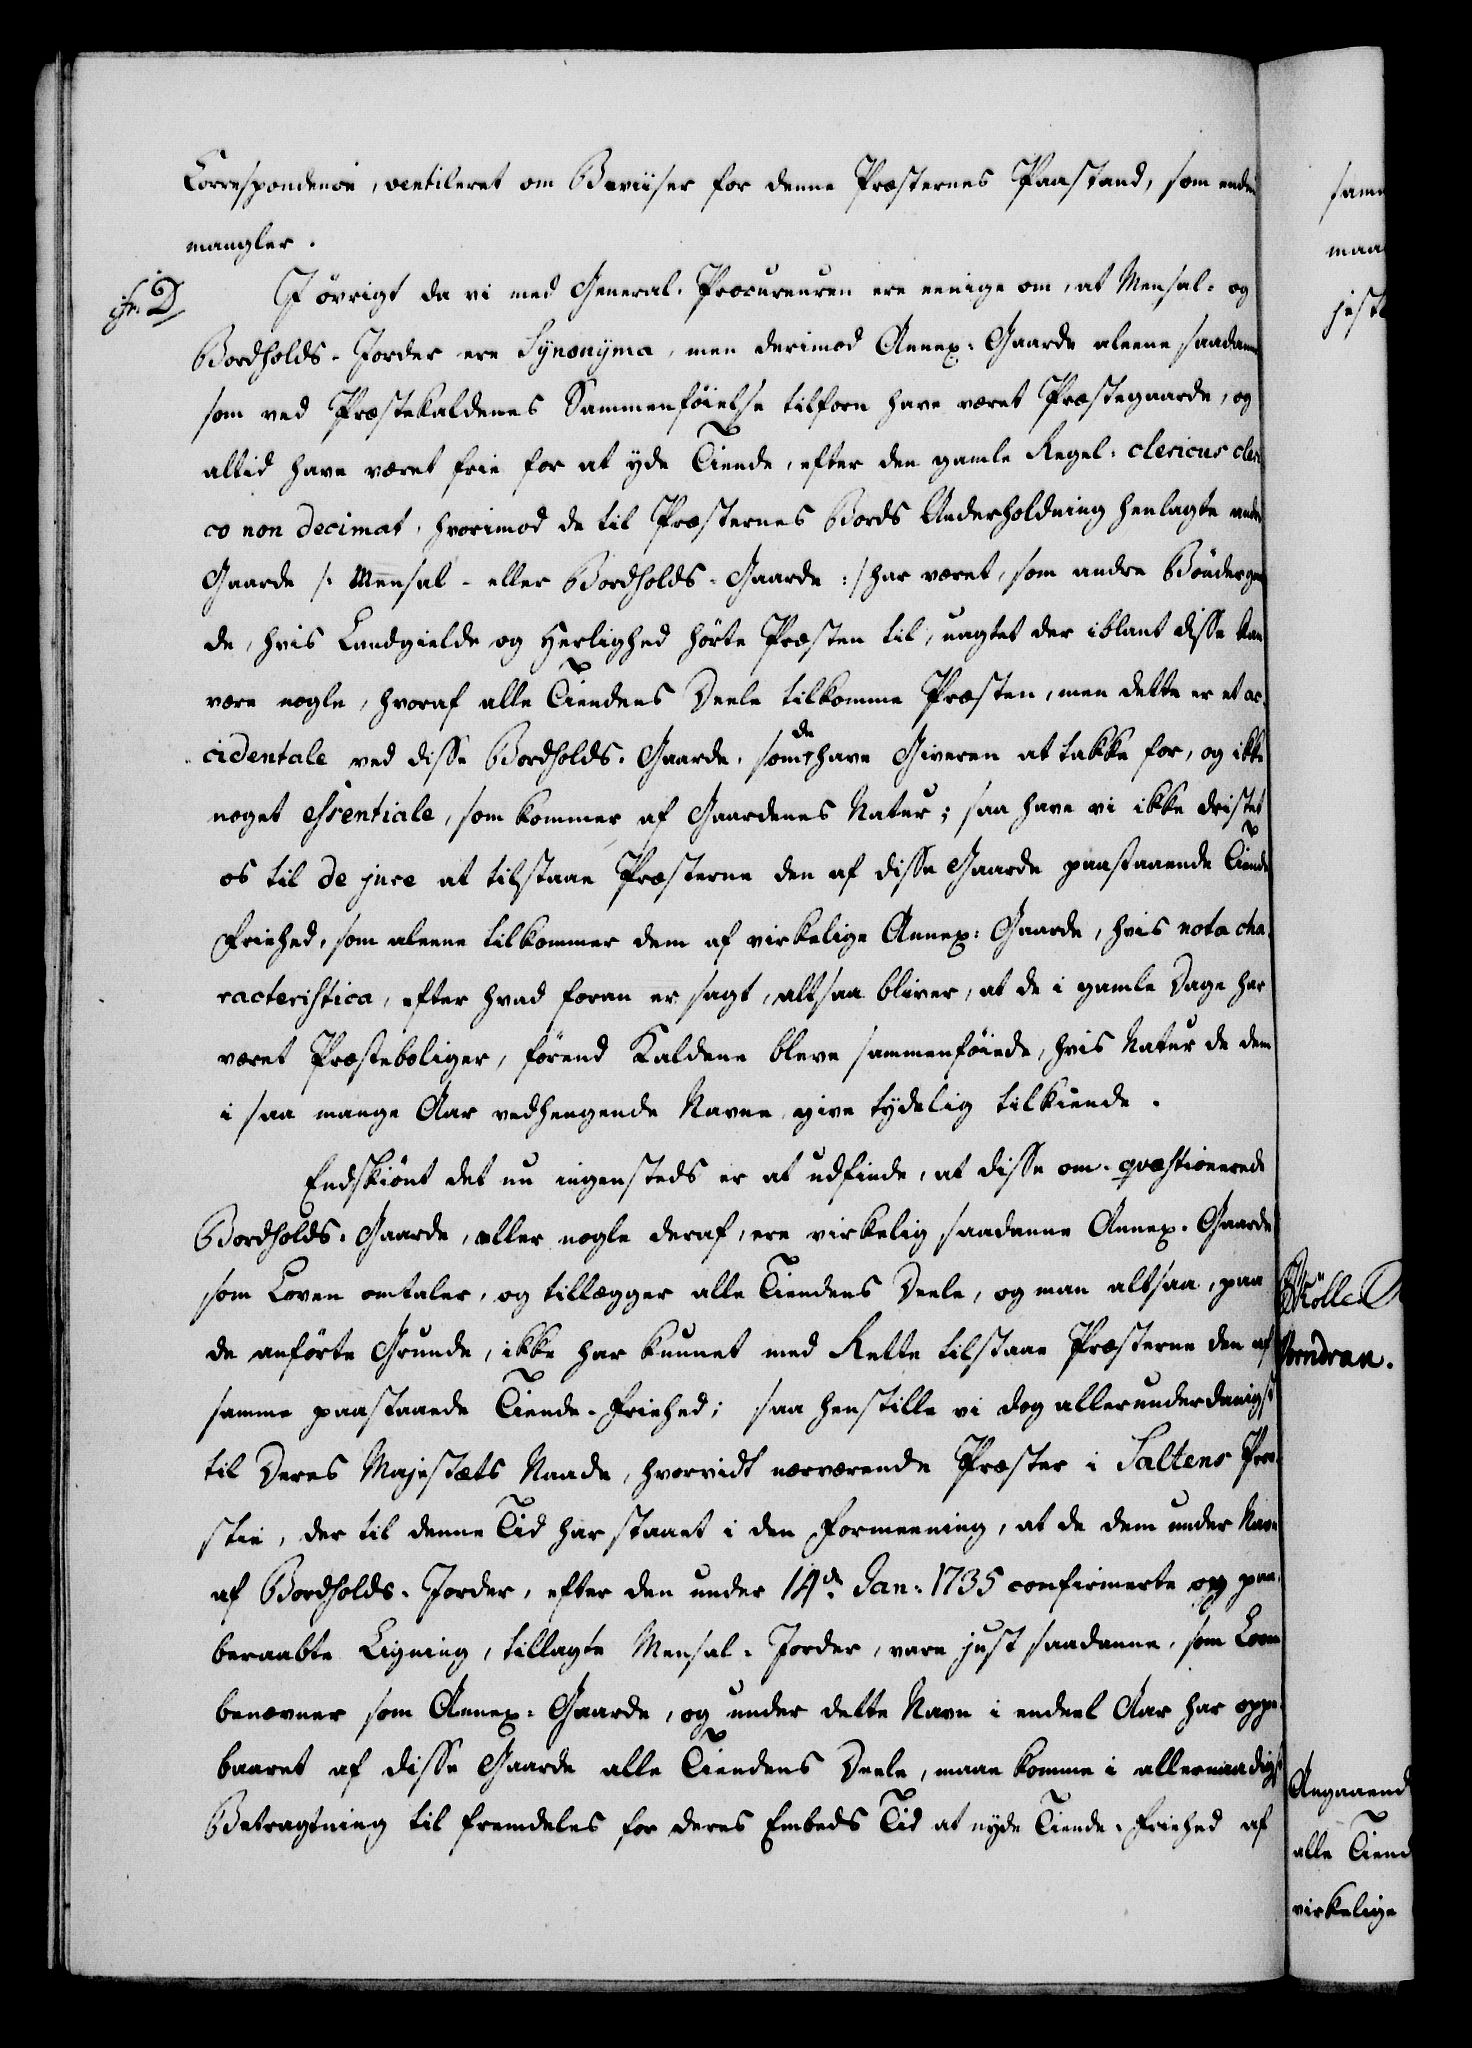 Correspondence, ventileret om Beviiser for denne Præsternes Paastand, som endnu
mangler.
cfr. D.
I övrigt da vi med General-Procureuren ere eenige om, at Mensal- og
Bordholds-Jorder ere Synonÿma, men derimod Annex-Gaarde aleene saadanne
som ved Præstekaldenes Sammenföielse tilforn have været Præstegaarde, og
altid have været frie for at yde Tiende, efter den gamle Regel: clericus cleri-
co non decimat, hvorimod de til Præsternes Bords Underholdning henlagte andre
Gaarde /: Mensal- eller Bordholds-Gaarde :/ har været, som andre Böndergaar-
de, hvis Landgielde og Herlighed hörte Præsten til, uagtet der iblant disse kan
være nogle, hvoraf alle Tiendens Deele tilkomme Præsten, men dette er et ac-
cidentale ved disse Bordholds-Gaarde, som de have Giveren at takke for, og ikke
noget essentiale, som kommer af Gaardenes Natur; saa have vi ikke dristet
os til de jure at tilstaae Præsterne den af disse Gaarde paastaaende Tiende
Friehed, som aleene tilkommer dem af virkelige Annex-Gaarde, hvis nota cha-
racteristica, efter hvad foran er sagt, altsaa bliver, at de i gamle Dage har
været Præsteboliger, förend Kaldene bleve sammenföiede, hvis Natur de dem
i saa mange Aar vedhengende Navne give tydelig tilkiende.
Endskiönt det nu ingensteds er at udfinde, at disse om-qvæstionerede
Bordholds-Gaarde, eller nogle deraf, ere virkelig saadanne Annex-Gaarde
som Loven omtaler, og tillægger alle Tiendens Deele, og man altsaa, paa
de anförte Grunde, ikke har kunnet med Rette tilstaae Præsterne den af
samme paastaaede Tiende-Friehed; saa henstille vi dog allerunderdanigst
til Deres Majestæts Naade, hvorvidt nærværende Præster i Saltens Prov-
stie, der til denne Tid har staaet i den Formeening, at de dem under Navn
af Bordholds-Jorder, efter den under 14de Jan: 1735 confirmerte og paa-
beraabte Ligning, tillagte Mensal-Jorder, vare just saadanne, som Loven
benævner som Annex-Gaarde, og under dette Navn i endeel Aar har oppe-
baaret af disse Gaarde alle Tiendens Deele, maae komme i allernaadigst
Betragtning til fremdeles for deres Embeds Tid at nyde Tiende-Friehed af
maa
Angaaend
alle Tiend
virkelige